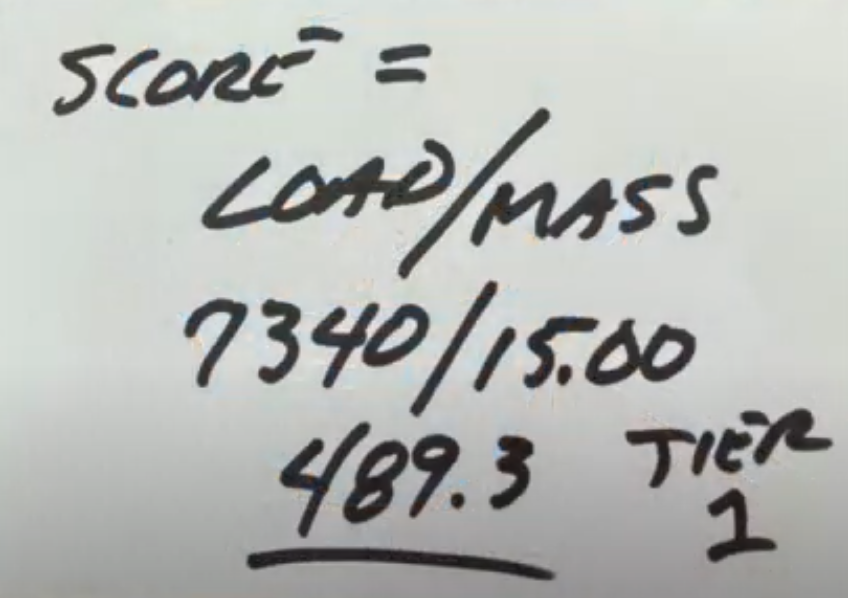 SCORE =
LOAD/MASS
7340/15.00
489.3 TIER
1